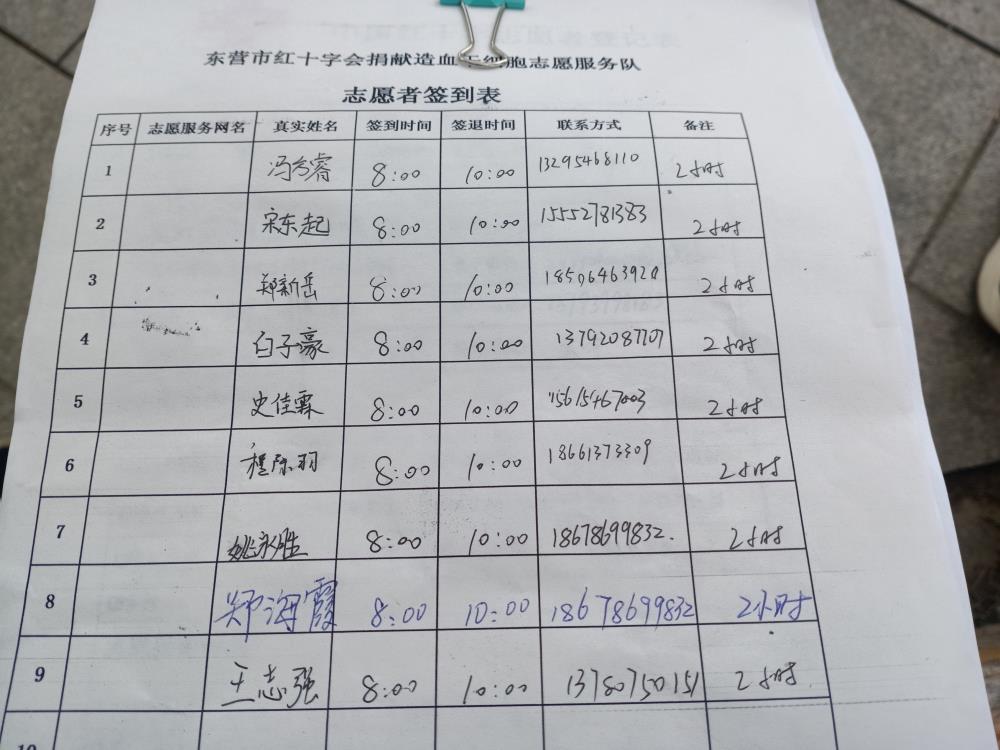 东营市红十字会捐献造血干细胞志愿服务队
志愿者签到表
序号 志愿服务网名 真实姓名 签到时间 签退时间 联系方式 备注
1 冯方睿 8:00 10:00 13295468110 2小时
2 宋东起 8:00 10:00 15552781383 2小时
3 郑新岳 8:00 10:00 18506463920 2小时
4 白子豪 8:00 10:00 13792087707 2小时
5 史佳霖 8:00 10:00 15615467003 2小时
6 程 羽 8:00 10:00 18661373309 2小时
7 姚永胜 8:00 10:00 18678699832. 2小时
8 郑海霞 8:00 10:00 18678699832 2小时
9 王志强 8:00 10:00 13780750151 2小时
10